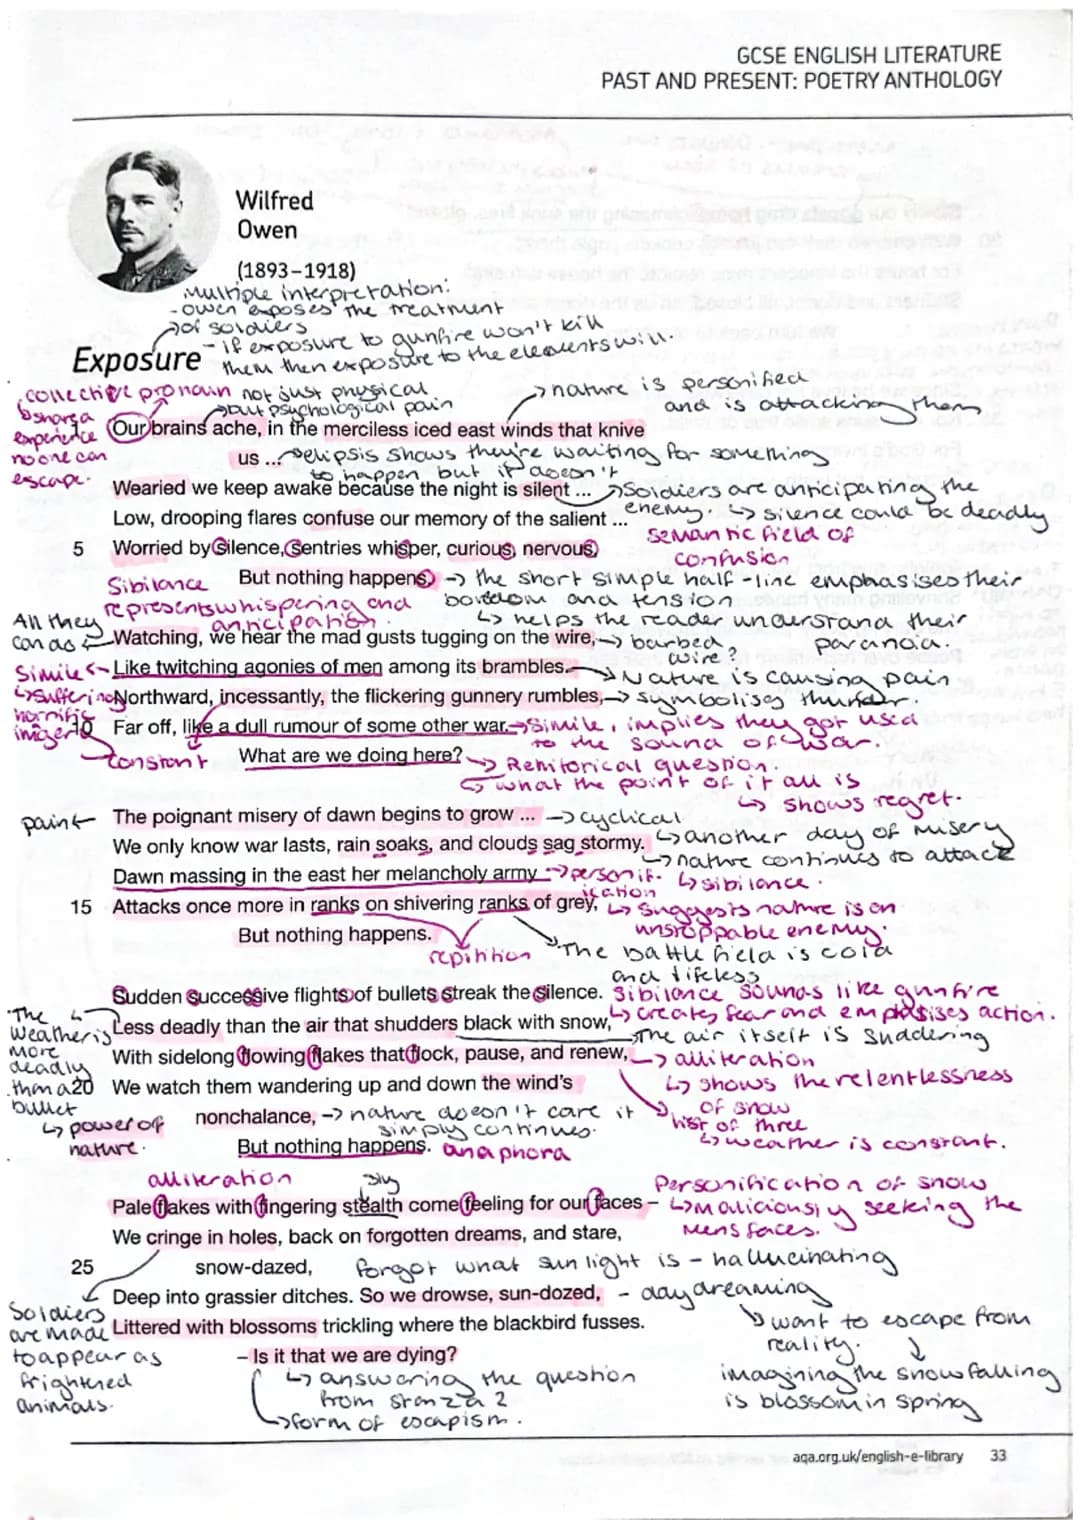 GCSE ENGLISH LITERATURE
PAST AND PRESENT: POETRY ANTHOLOGY
Wilfred
Owen
(1893–1918)
Multiple interpretation:
- Owen exposes the treatment
of soldiers
- if exposure to gunfire won't kill
them then exposure to the elements will.
Exposure
collective pronoun
↳ shares a
experience
no one can
escape.
not just physical
but psychological pain
→ nature is personified
and is attacking them
Our brains ache, in the merciless iced east winds that knive
us ...
→ elipsis shows they're waiting for something
to happen but it doesn't
Wearied we keep awake because the night is silent ...
→ Soldiers are anticipating the
enemy. ↳ silence could be deadly
Low, drooping flares confuse our memory of the salient ...
semantic field of
confusion
5 Worried by silence, sentries whisper, curious, nervous,
But nothing happens.
→ the short simple half-line emphasises their
boredom and tension
↳ helps the reader understand their
paranoia.
Sibilance
represents whispering and
anticipation.
All they
can do
Watching, we hear the mad gusts tugging on the wire,
→ barbed
wire?
Simile
↳ suffering
horrific
imagery
Like twitching agonies of men among its brambles.
→ Nature is causing pain
Northward, incessantly, the flickering gunnery rumbles,
→ symbolising thunder.
10 Far off, like a dull rumour of some other war.
→ Simile, implies they got used
to the sound of war.
constant
What are we doing here?
→ Rehitorical question.
↳ what the point of it all is
↳ shows regret.
pain ←
The poignant misery of dawn begins to grow ...
→ cyclical
↳ another day of misery
We only know war lasts, rain soaks, and clouds sag stormy.
↳ nature continues to attack
↳ sibilance.
Dawn massing in the east her melancholy army
→ personif-
ication
15 Attacks once more in ranks on shivering ranks of grey,
↳ Suggests nature is an
unstoppable enemy.
But nothing happens.
repitition
The battlefield is cold
and lifeless
Sudden successive flights of bullets streak the silence.
Sibilance sounds like gunfire
↳ creates fear and emphasises action.
The
weather is
more
deadly
than a
bullet
↳ power of
nature.
Less deadly than the air that shudders black with snow,
→ The air itself is shuddering
With sidelong flowing flakes that flock, pause, and renew,
→ alliteration
↳ shows the relentlessness
of snow
20 We watch them wandering up and down the wind's
list of three
↳ weather is constant.
nonchalance,
→ nature doesn't care it
simply continues.
But nothing happens.
anaphora
alliteration
sly
Personification of snow
↳ maliciously seeking the
mens faces.
Pale flakes with fingering stealth come feeling for our faces –
We cringe in holes, back on forgotten dreams, and stare,
25 snow-dazed,
forgot what sun light is – hallucinating
Deep into grassier ditches. So we drowse, sun-dozed,
- daydreaming
Soldiers
are made
to appear as
frightened
animals.
Littered with blossoms trickling where the blackbird fusses.
↳ want to escape from
reality.
imagining the snow falling
is blossom in spring
– Is it that we are dying?
↳ answering the question
from stanza 2
→ form of escapism.
aqa.org.uk/english-e-library 33